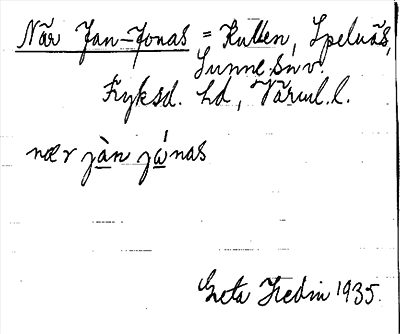 När Jan-Jonas = Kullen, Spelnäs,
Sunne sn v.
Fryksd. hd, Värml. l.
nær jàn jónas
Greta Hedin 1935.